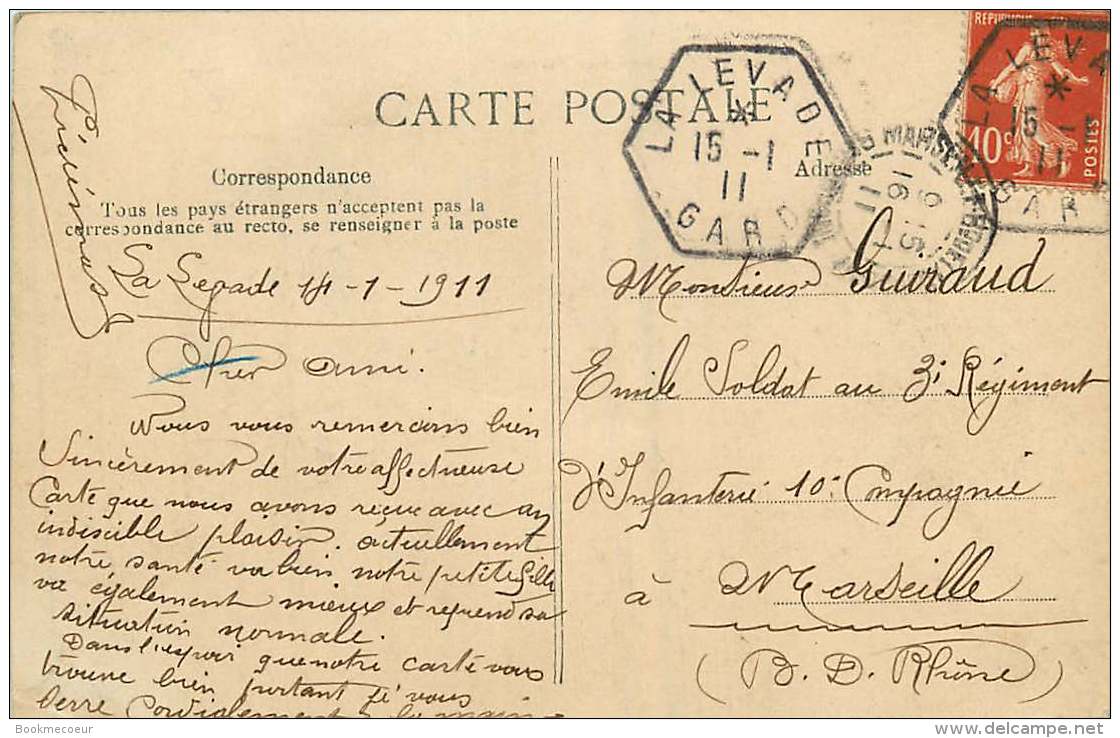 CARTE POSTALE
Correspondance
Tous les pays étrangers n'acceptent pas la
correspondance au recto, se renseigner à la poste
La Levade 14-1-1911
Cher ami.
Nous vous remercions bien
Sincèrement de votre affectueuse
Carte que nous avons reçue avec an
indiscible plaisir. actuellement
notre santé va bien, notre petite fille
va également mieux et reprend sa
situation normale.
Dans l'espoir que notre carte vous
trouve bien portant je vous
Serre Cordialement la main
LA LEVADE
*
15 -1
11
GARD
Adresse
REPUBLIQUE
10c
POSTES
LA LEVA
*
15 -1
11
GAR
MARSEILLE
16
11
Monsieur Guiraud
Emile Soldat au 3e Régiment
d'Infanterie 10e Compagnie
à Marseille
(B. D. Rhône)
Bookmecoeur
delcampe.net